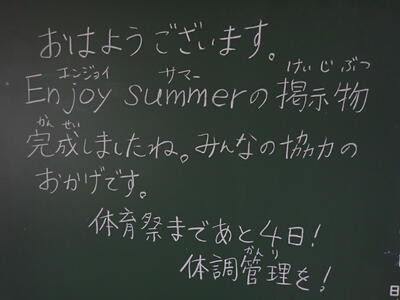 おはようございます。
エンジョイ サマー けいじぶつ
Enjoy summerの掲示物
かんせい
完成しましたね。みんなの協力の
おかげです。
体育祭まであと4日!
かんり
体調管理を!
日